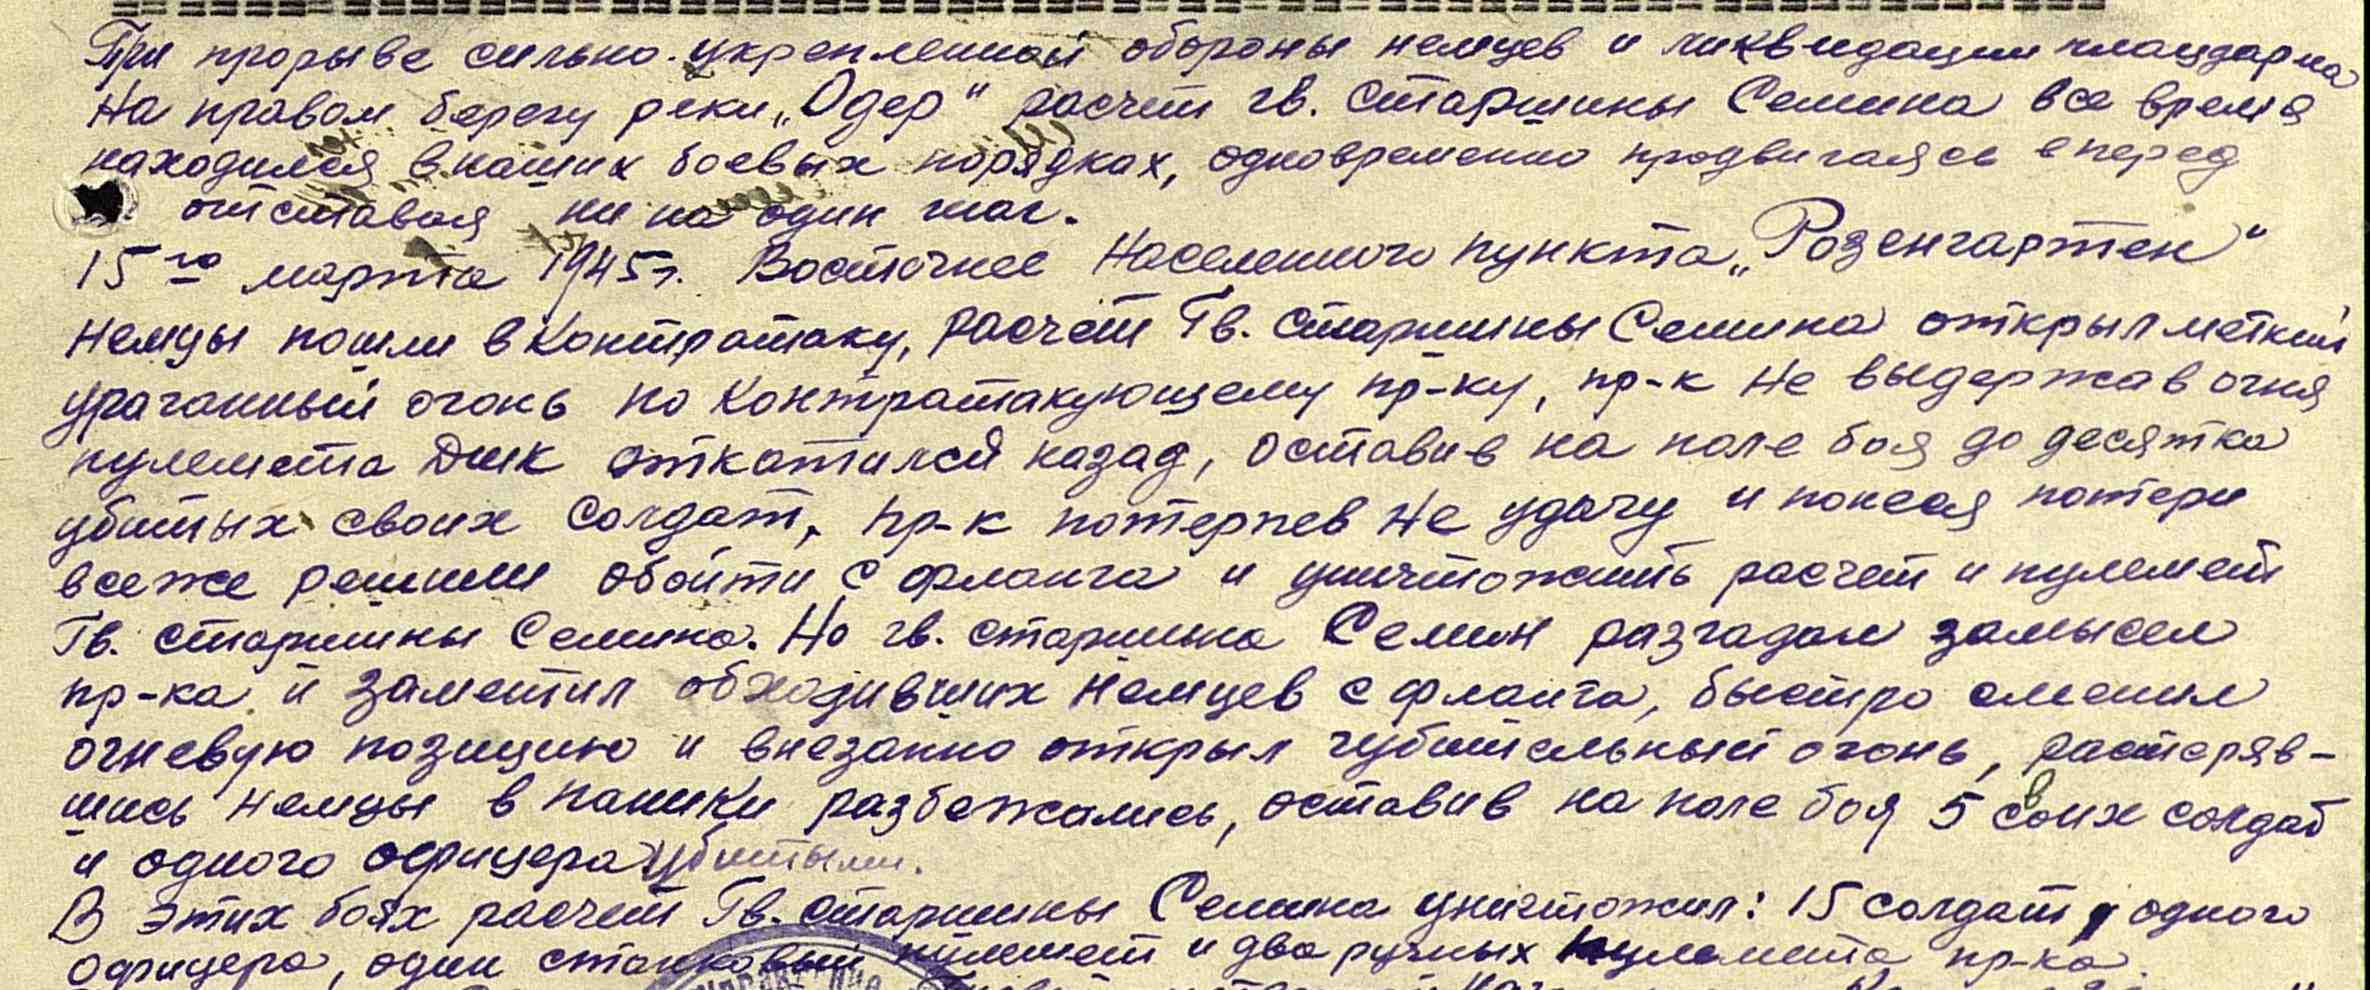 При прорыве сильно укрепленной обороны немцев и ликвидации плацдарма
На правом берегу реки „Одер" расчет гв. старшины Семина все время
находился в наших боевых порядках, одновременно продвигаясь вперед
отставая ни на один шаг.
15го марта 1945г. Восточнее Населенного пункта „Розенгартен"
Немцы пошли в Контратаку, расчет Гв. старшины Семина открыл меткий
ураганный огонь по Контратакующему пр-ку, пр-к не выдержав огня
пулемета Дшк откатился назад, оставив на поле боя до десятка
убитых своих солдат, пр-к потерпев не удачу и понеся потери
всеже решили обойти с фланга и уничтожить расчет и пулемет
Гв. старшины Семина. Но гв. старшина Семин разгадал замысел
пр-ка и заметил обходивших немцев с фланга, быстро сменил
огневую позицию и внезапно открыл губительный огонь, растеряв-
шись немцы в паники разбежались, оставив на поле боя 5 своих солдат
и одного офицера убитыми.
В этих боях расчет Гв. старшины Семина уничтожил: 15 солдат, одного
офицера, один станковый пулемет и два ручных пулемета пр-ка.